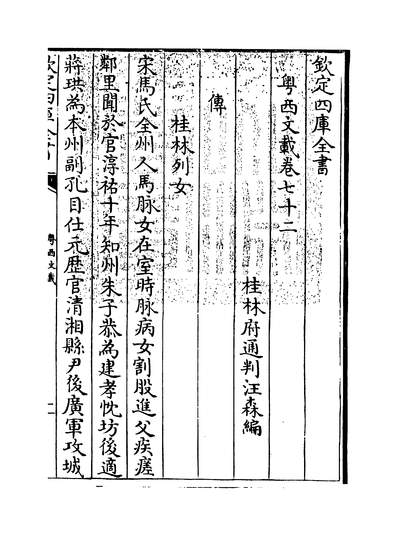 欽定四庫全書
粤西文載卷七十二
桂林府通判汪森編
傳
桂林列女
宋馬氏全州人馬脉女在室時脉病女割股進父疾瘥
鄰里聞於官淳祐十年知州朱子恭為建孝忱坊後適
蔣珙為本州副孔目仕元歴官清湘縣尹後廣軍攻城
欽定四庫全書
粤西文載